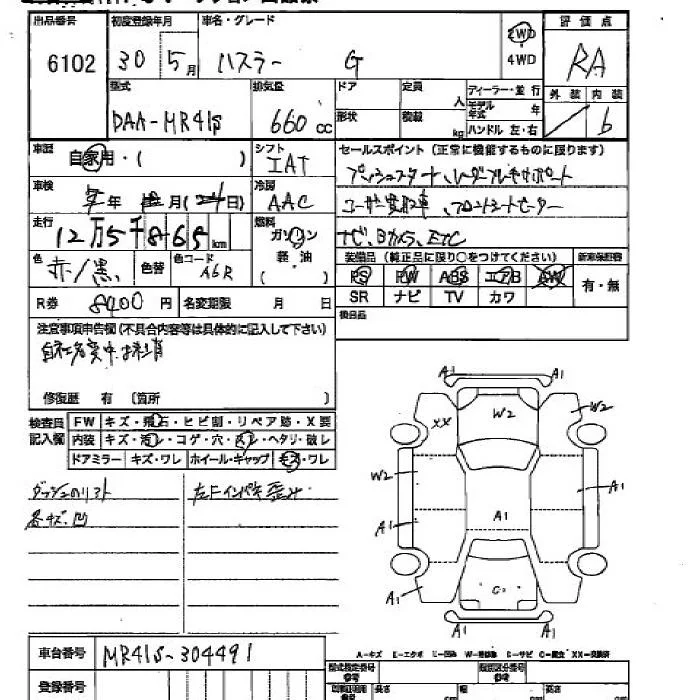 出品番号 初度登録年月 車名・グレード 評価点
6102 30 5月 ハスラー G 2WD 4WD RA
型式 排気量 ドア 定員 人 ディーラー・並行 外装 内装
DAA-MR41S 660cc 形状 積載 kg モデル年式 年 ハンドル 左・右 6
車歴 自家用・( ) シフト IAT セールスポイント (正常に機能するものに限ります)
プッシュスタート、レーダーブレーキサポート
車検 年 月( 日) 冷房 AAC ユーザー買取車、フロントシートヒーター
走行 12万5千865km 燃料 ガソリン 軽油 ( ) ナビ、Bカメラ、ETC
色 赤/黒 色替 色コード A6R 装備品 (純正品に限り○をつけてください) 新車保証書
PS PW ABS エアB AW 有・無
R券 8400円 名変期限 月 日 SR ナビ TV カワ
注意事項申告欄(不具合内容等は具体的に記入して下さい) 後日品
修復歴 有 〔箇所 〕
検査員記入欄 FW キズ・飛石・ヒビ割・リペア跡・X要
内装 キズ・汚レ・コゲ・穴・スレ・ヘタリ・破レ
ドアミラー キズ・ワレ ホイール・キャップ キズ・ワレ
各キズ凹
A1 A1
XX W2 W2
W2 A1
A1 A1
A1 A1
A1 A1
車台番号 MR41S-304491
登録番号
A-キズ E-エクボ XX-交換済
型式指定番号 類別区分番号
長さ 幅 高さ